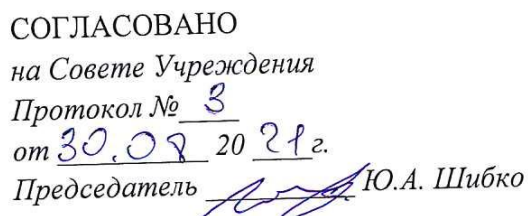 СОГЛАСОВАНО
на Совете Учреждения
Протокол № 3
от 30.08 20 21 г.
Председатель Ю.А. Шибко